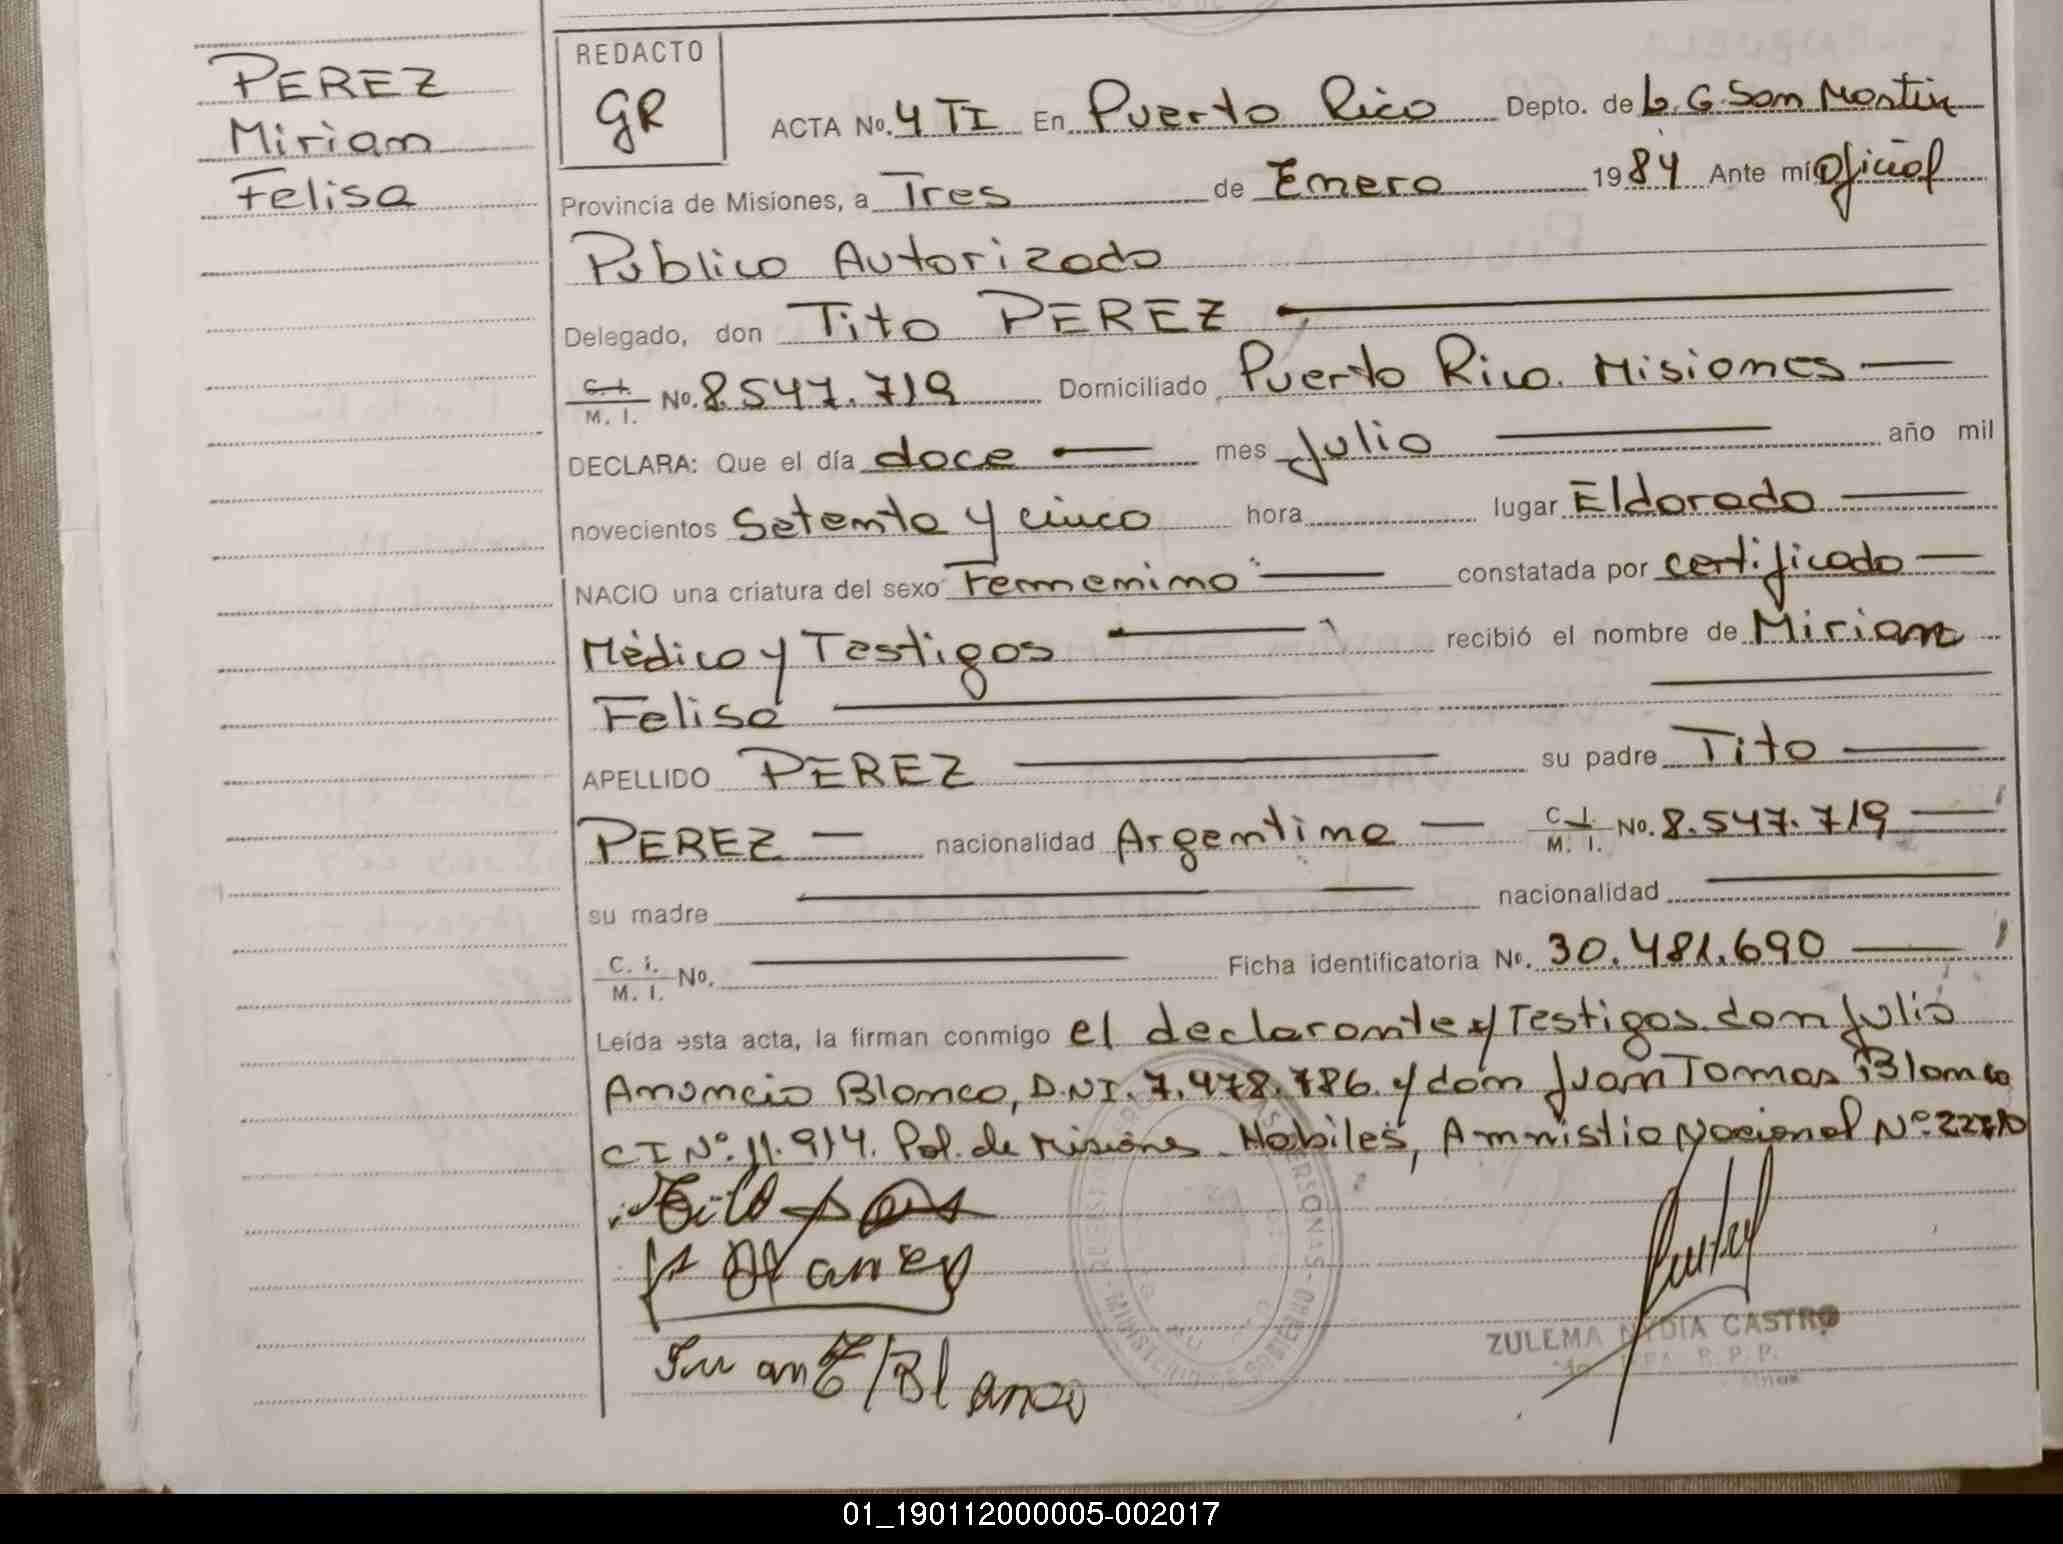 PEREZ
Miriam
Felisa
REDACTO
GR
ACTA No. 4 TI En Puerto Rico Depto. de L. G. San Martin
Provincia de Misiones, a Tres de Enero 1984 Ante mí Oficial
Público Autorizado
Delegado, don Tito PEREZ
C. I. / M. I. No. 8.547.719 Domiciliado Puerto Rico. Misiones
DECLARA: Que el día doce mes Julio año mil
novecientos Setenta y cinco hora lugar Eldorado
NACIO una criatura del sexo Femenino constatada por certificado
Médico y Testigos recibió el nombre de Miriam
Felisa
APELLIDO PEREZ su padre Tito
PEREZ nacionalidad Argentina C. I. / M. I. No. 8.547.719
su madre nacionalidad
C. I. / M. I. No. Ficha identificatoria No. 30.481.690
Leída esta acta, la firman conmigo el declarante y Testigos. don Julio
Anuncio Blanco, D.N.I. 7.478.786. y don Juan Tomas Blanco
C I Nº. 11.914. Pol. de Misiones. Habiles, Amnistia Nacional Nº
Blanco
Juan T/Blanco
ZULEMA NYDIA CASTRO
R. P. P.
01_190112000005-002017